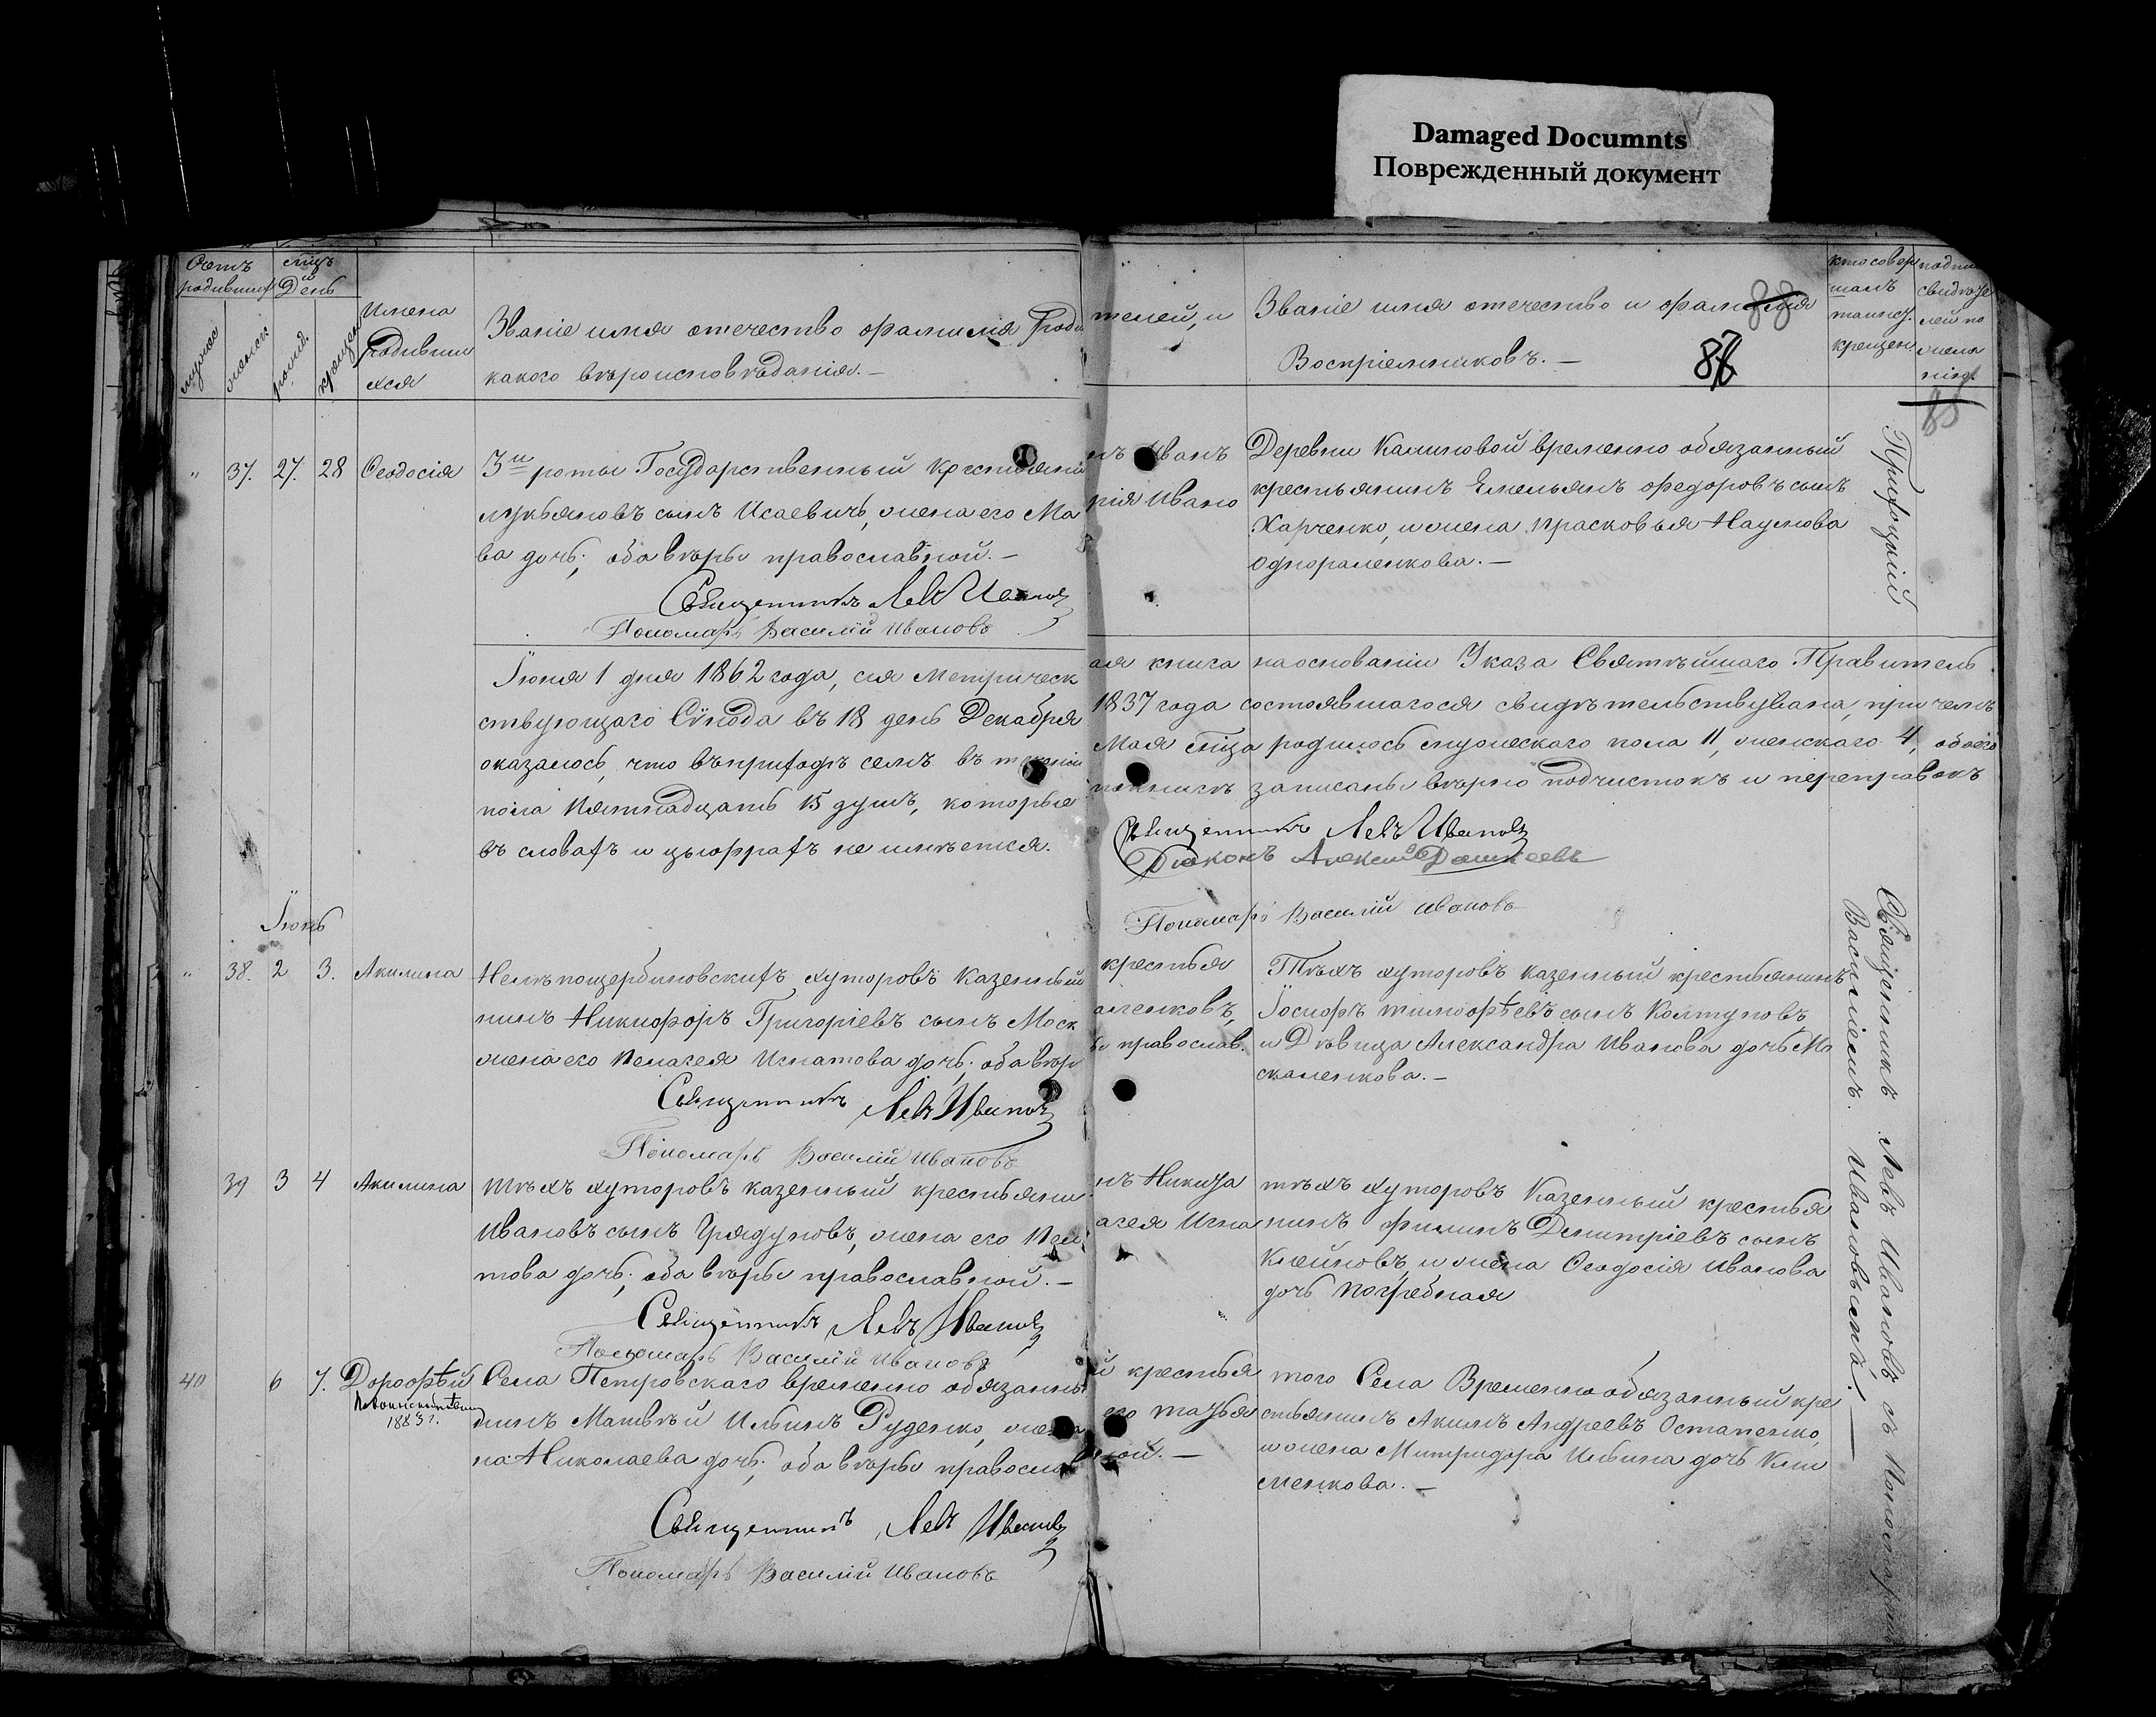 Damaged Documnts
Поврежденный документ
Счетъ
родивших
мѣсц
и
День
мужес
женск
рожд.
крещен
Имена
родивши
хся
Званіе имя отечество фамилія Роди
телей, и
какого вѣроисповѣданія. —
Званіе имя отечество и фамилія
Воспріемниковъ. —
88
кто совер
шалъ
таинст.
крещен.
" 37. 27. 28 Ѳеодосія
3й роты Государственный крестьяни
нъ Иванъ
Лукьяновъ сынъ Исаевичь, жена его Ма
рія Ивано
ва дочь; оба вѣры православной. —
Священникъ Левъ Ивановъ
Пономарь Василій Ивановъ
Деревни Калиновой временно обязанный
крестьянинъ Емельянъ Федоровъ сынъ
Харченко, и жена Прасковья Наумова
Приходскій
Іюня 1 дня 1862 года, сія Метрическ
ая книга на основаніи Указа Святѣйшаго Правитель
ствующаго Сѵнода въ 18 день Декабря
1837 года состоявшагося свидѣтельствована, при чемъ
оказалось, что въ приходѣ семъ въ теченіи
Мая мѣсца родилось мужескаго пола 11, женскаго 4, обоего
пола пятнадцать 15 душъ, которые
записаны вѣрно подчистокъ и переправокъ
въ словахъ и цыфрахъ не имѣется.
Священникъ Левъ Ивановъ
Діаконъ Алексій
Пономарь Василій Ивановъ
Іюнь
" 38. 2 3. Акилина
хуторовъ Казенный
крестья
нинъ Никифоръ Григоріевъ сынъ Моск
аленковъ,
жена его Пелагея Игнатова дочь; оба вѣр
ы православ.
Священникъ Левъ Ивановъ
Пономарь Василій Ивановъ
Тѣхъ хуторовъ казенный крестьянинъ
Іосифъ Тимофѣевъ сынъ Колтуновъ,
и Дѣвица Александра Иванова дочь Мо
скаленкова. —
39 3 4 Акилина
тѣхъ хуторовъ казенный крестьяни
нъ Никита
Ивановъ сынъ жена его Пел
агея Игна
това дочь; оба вѣры православной. —
Священникъ Левъ Ивановъ
Пономарь Василій Ивановъ
тѣхъ хуторовъ Казенный крестья
нинъ Филипъ Димитріевъ сынъ
Клейновъ, и жена Ѳеодосія Иванова
дочь Погребная
40 6 7. Дорофѣй
1883 г.
Села Петровскаго временно обязанны
й крестья
нинъ Матвѣй Ильинъ Руденко, жена
его Татья
на Николаева дочь; оба вѣры православ
ной. —
Священникъ Левъ Ивановъ
Пономарь Василій Ивановъ
того Села Временно обязанный кре
стьянинъ Акимъ Андреевъ Остапенко,
и жена Митродора Ильина дочь Кли
менкова. —
Священникъ Левъ Ивановъ съ Пономаремъ
Василіемъ Ивановымъ. —